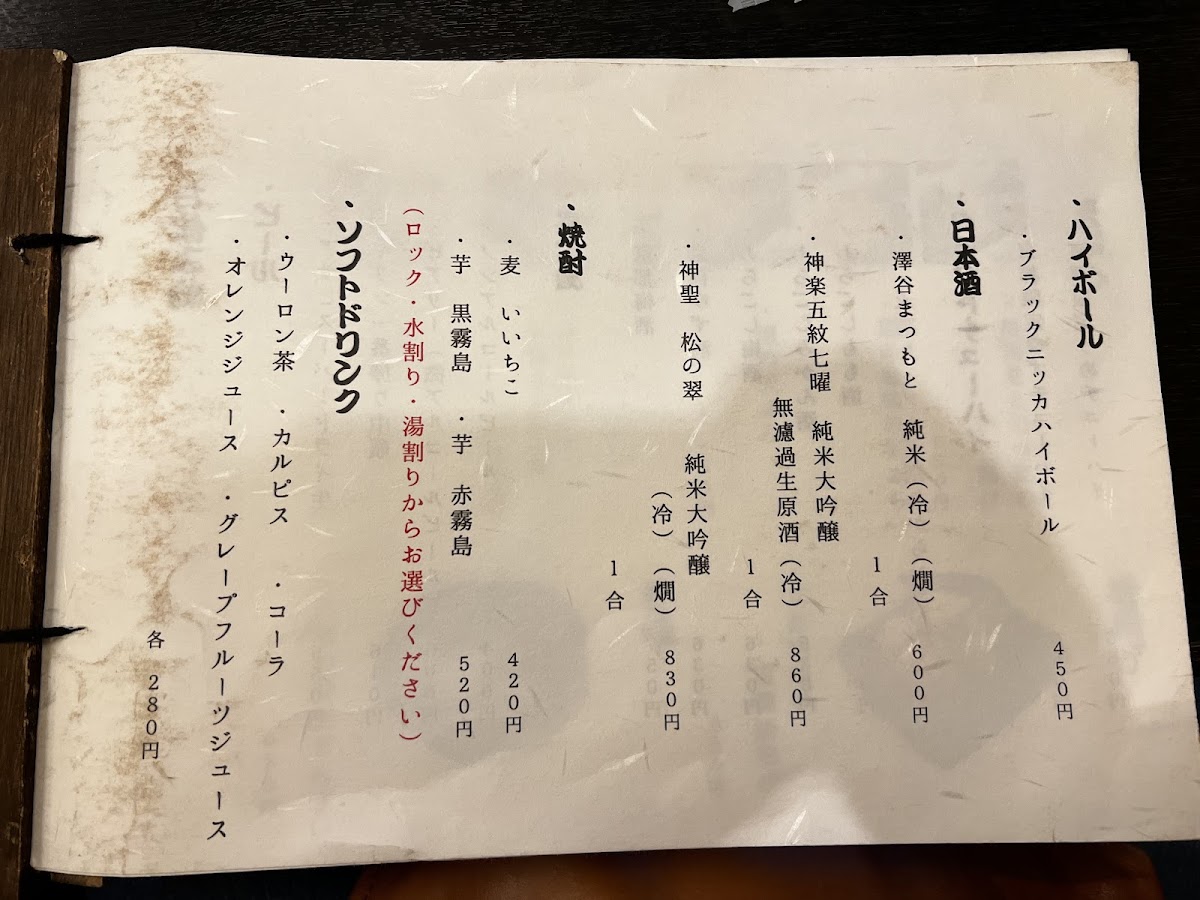 ・ハイボール
・ブラックニッカハイボール 450円
・日本酒
・澤谷まつもと 純米（冷）（燗） 600円
1合
・神楽五紋七曜 純米大吟醸
無濾過生原酒（冷） 860円
1合
・神聖 松の翠 純米大吟醸
（冷）（燗） 830円
1合
・焼酎
・麦 いいちこ 420円
・芋 黒霧島 ・芋 赤霧島 520円
（ロック・水割り・湯割りからお選びください）
・ソフトドリンク
・ウーロン茶 ・カルピス ・コーラ
・オレンジジュース ・グレープフルーツジュース
各 280円